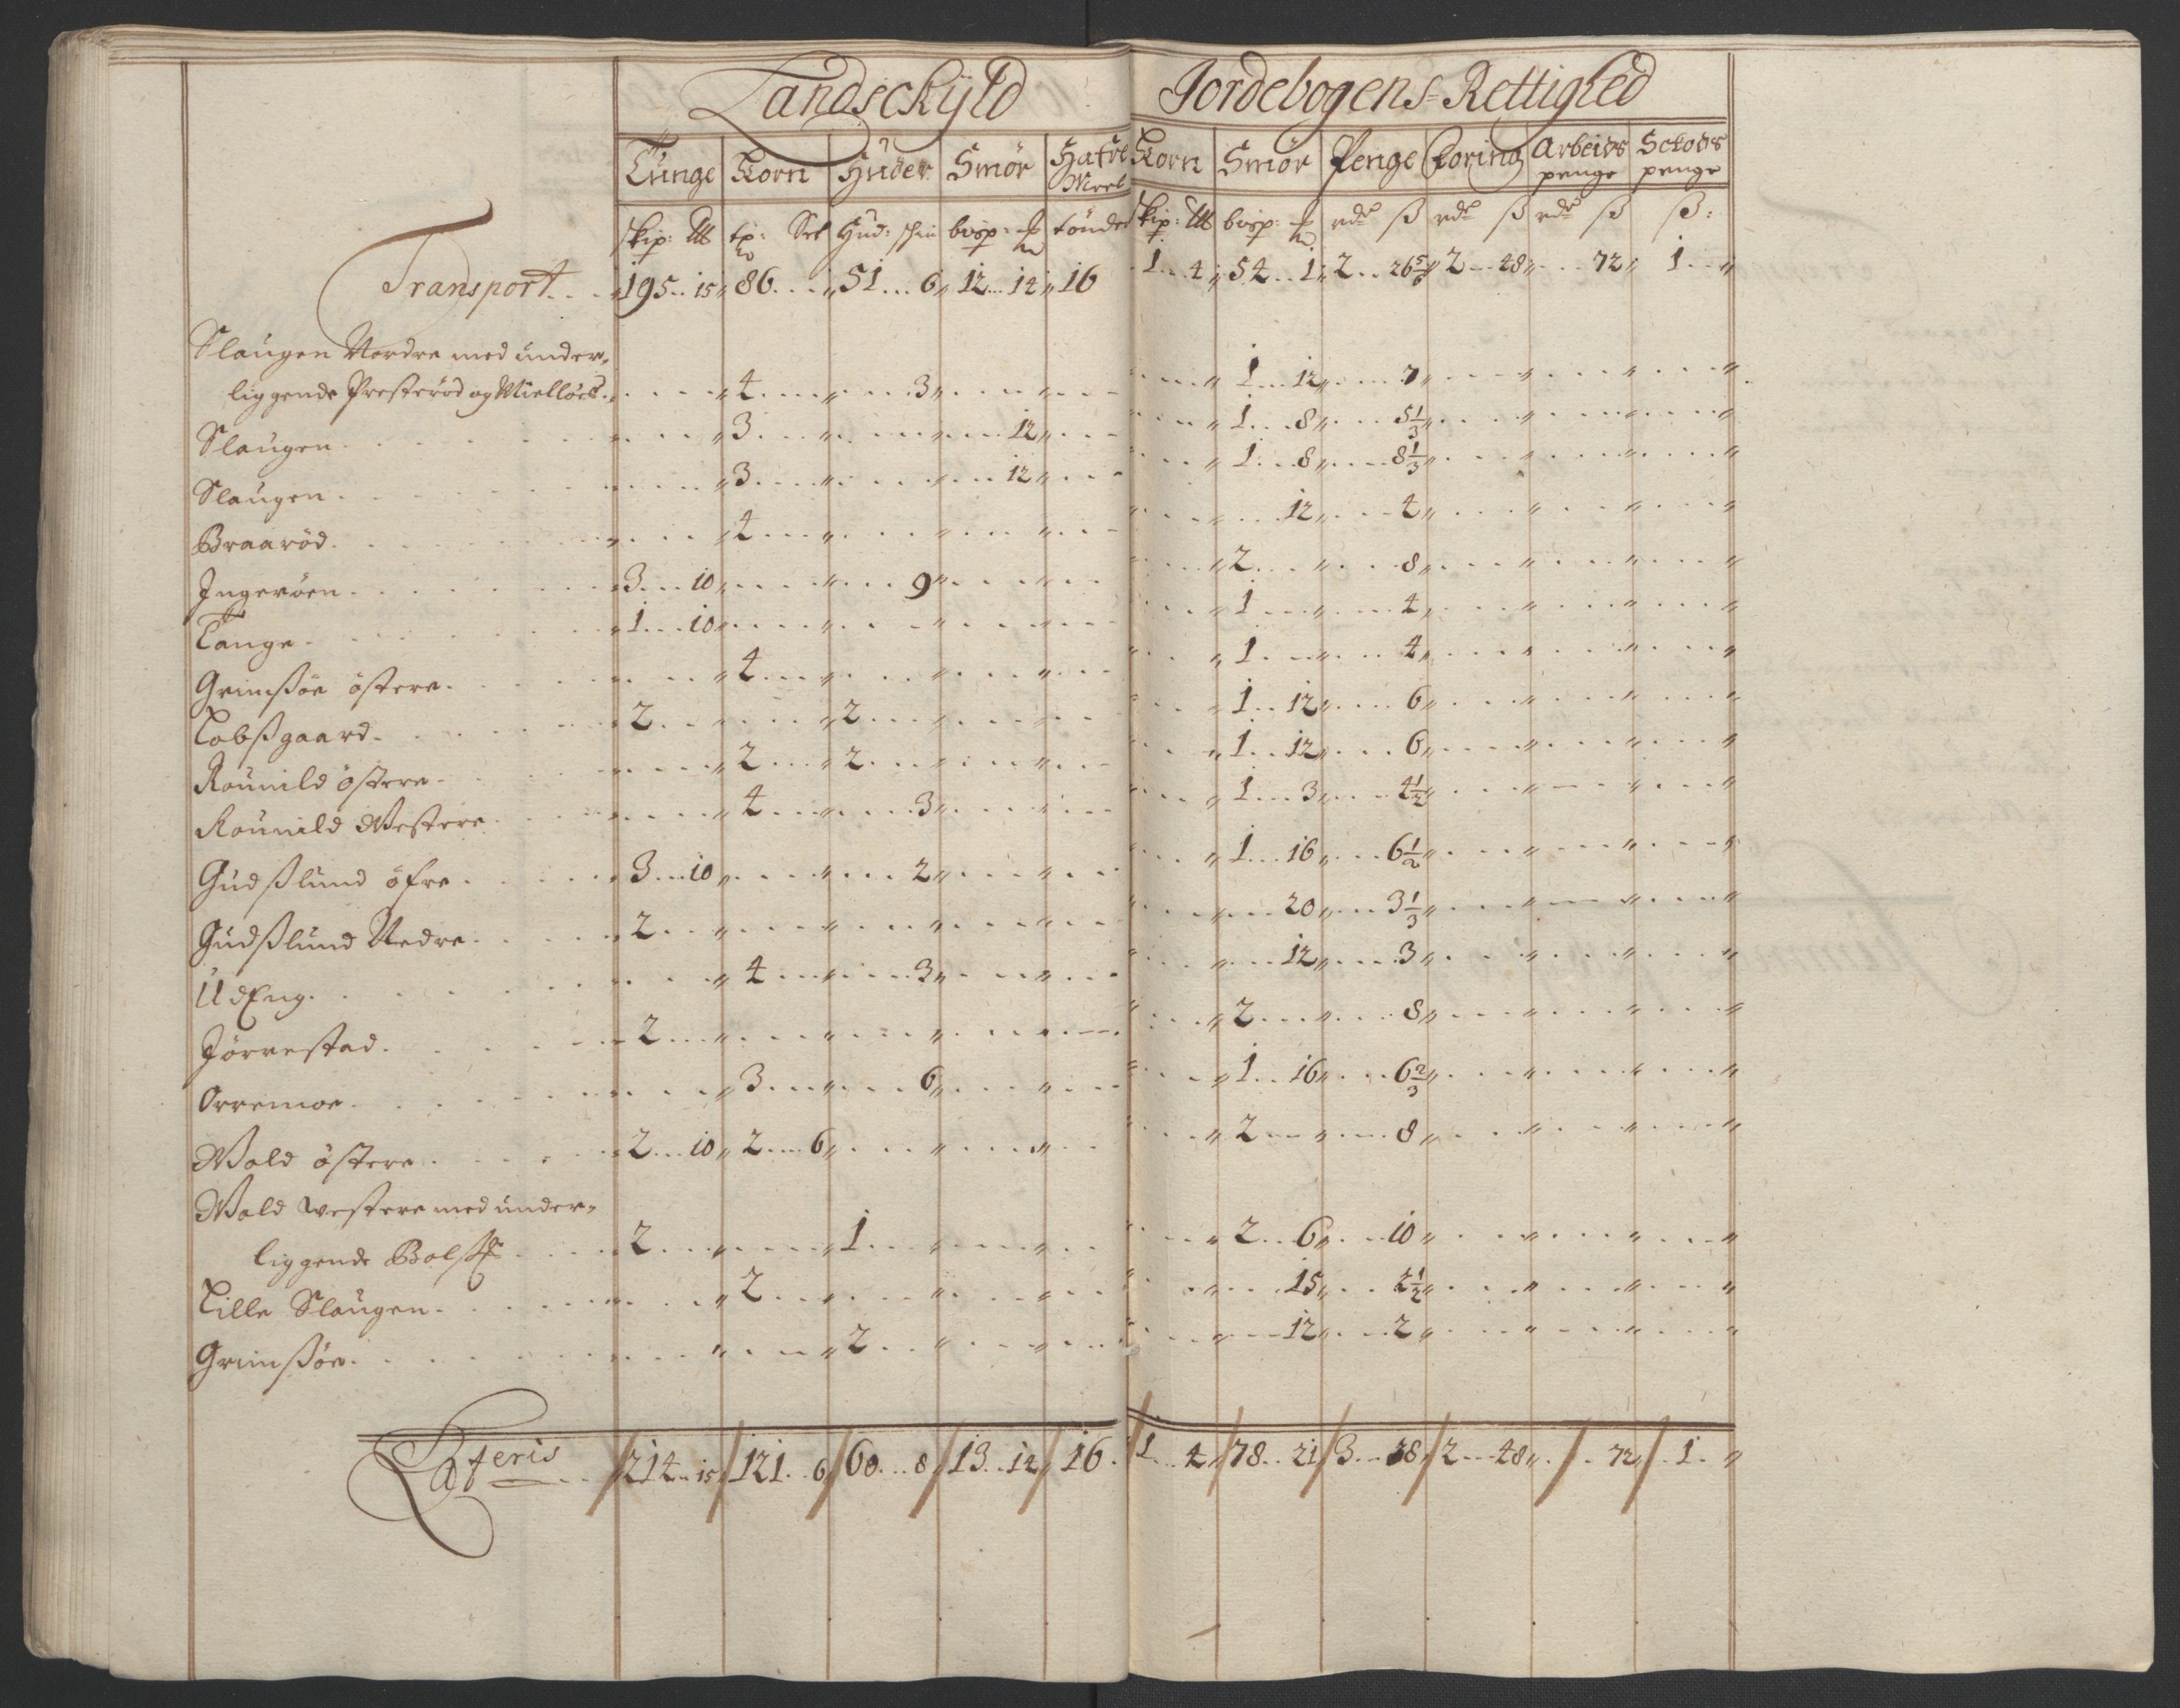 Landschÿld Jordebogens Rettighed
Tunge Korn Huder Smör Hafre Meel Korn Smör Penge Foring Arbeids penge Schovs penge
skip: ℔ tp: Set Hud: skin bvsp: tönder skip: ℔ bvsp: rdr ß rdr ß rdr ß ß:
Transport 195 15 86 51 6 12 14 16 1 4 54 1 2 26 5/6 2 48 72 1
Slaugen Nordre med under-
liggende Presteröd og Mielløes 4 3 1 12 7
Slaugen 3 12 1 8 5 1/3
Slaugen 3 12 1 8 8 1/3
Braaröd 4 12 4
Ingeröen 3 10 9 2 8
Tange 1 10 1 4
Grimßöe östere 4 1 4
Lobßgaard 2 2 1 12 6
Rounild östere 2 2 1 12 6
Rounild Westere 4 3 1 3 4 1/2
Gudßlund öfre 3 10 2 1 16 6 1/2
Gudßlund Nedre 2 20 3 1/3
UdEng 4 3 12 3
Jörrestad 2 2 8
Orremoe 3 6 1 16 6 2/3
Wold östere 2 10 2 6 2 8
Wold westere med under-
liggende 2 1 2 6 10
Lille Slaugen 2 15 2 1/2
Grimßöe 2 12 2
Lateris 214 15 121 6 60 8 13 14 16 1 4 78 21 3 38 2 48 72 1